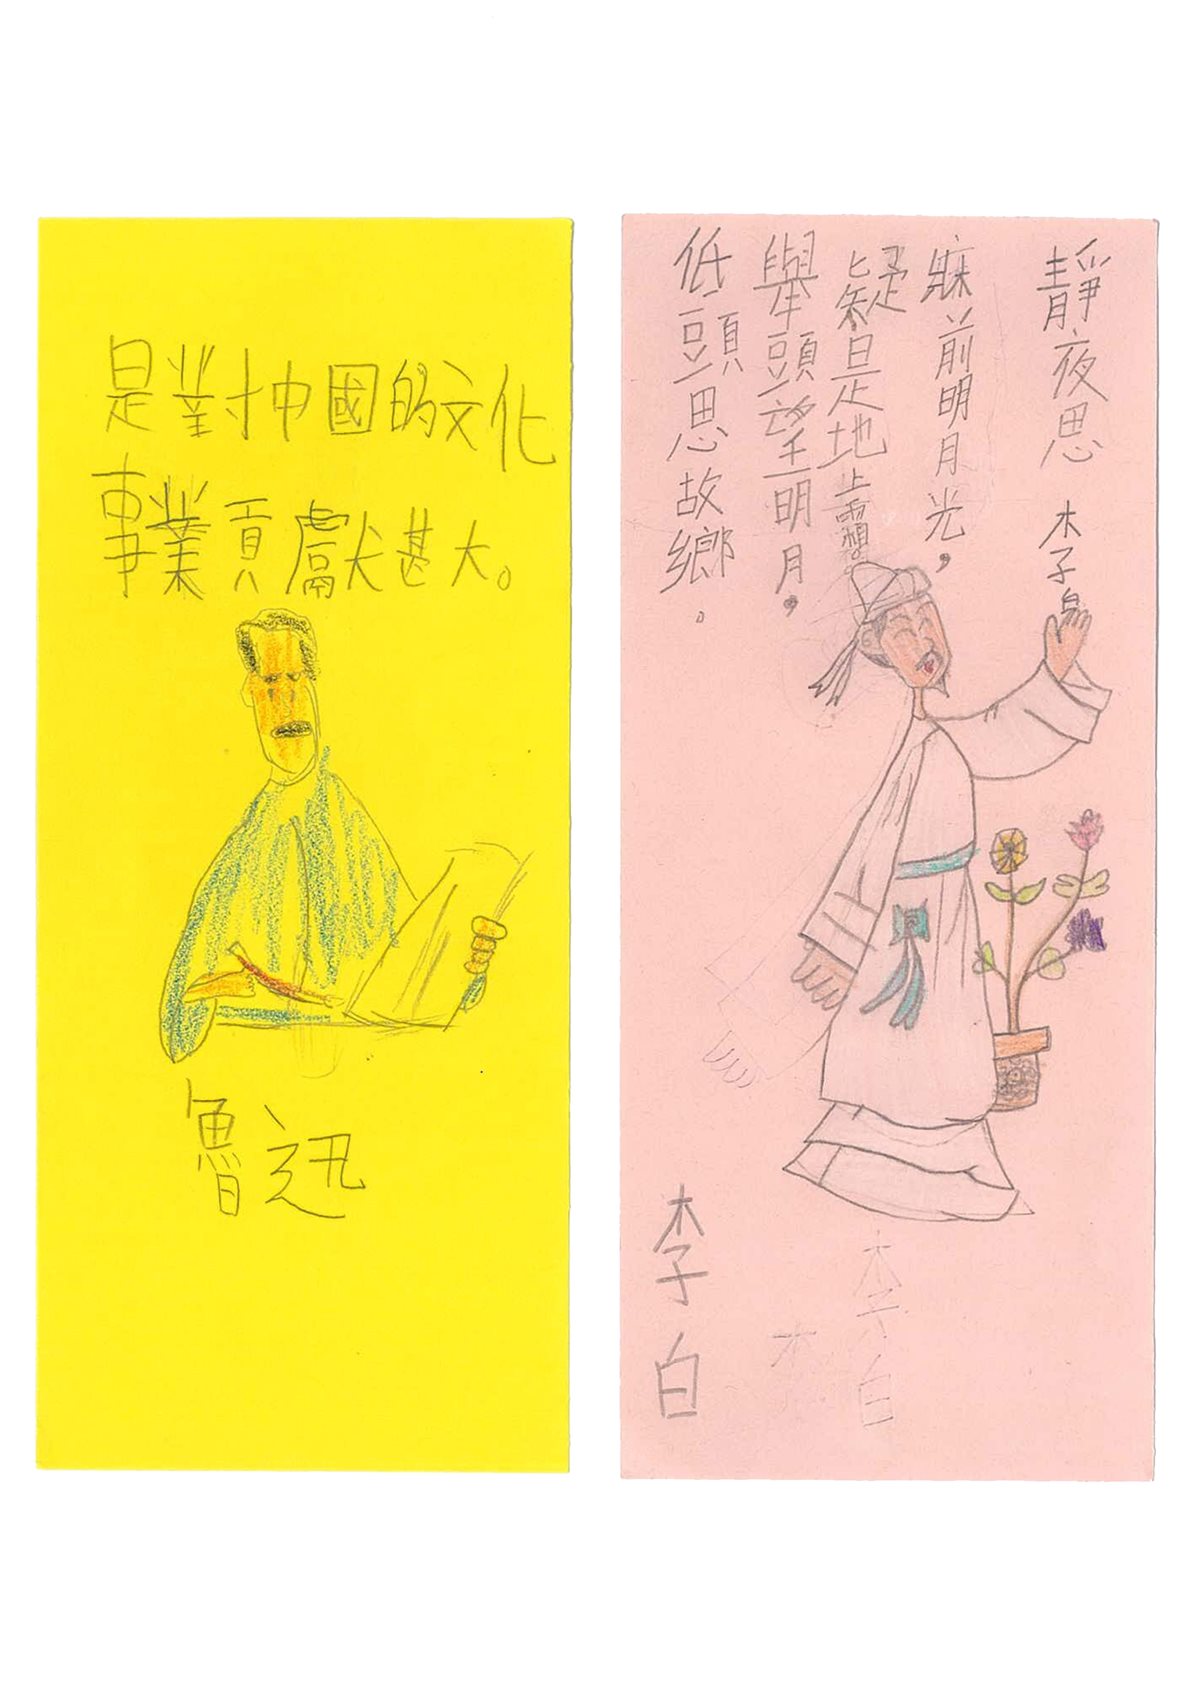 是對中國的文化
事業貢獻甚大。
魯迅
靜夜思 李白
牀前明月光，
疑是地上霜。
舉頭望明月，
低頭思故鄉。
李白
李白
木